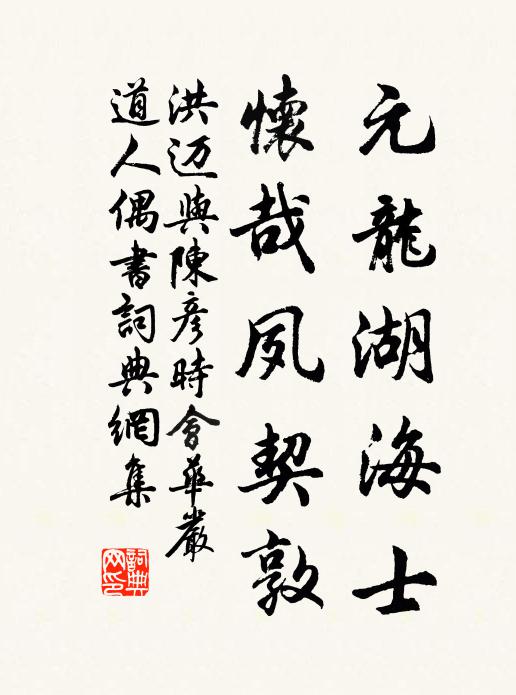 元龍湖海士
懷哉夙契敦
洪迈與陳彦時會華嚴
道人偶書詞典網集
詞典
网印